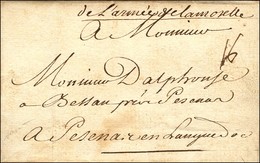 de L'armée de lamoselle
A Monsieur
Monsieur Dalphonse
a Bessan près Pesenas
A Pesenas en Languedoc